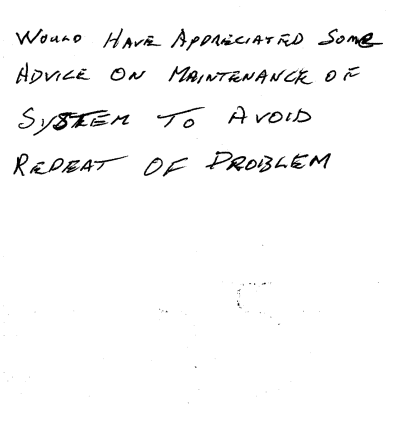 Would Have Appreciated Some
Advice On Maintenance of
System To Avoid
Repeat Of Problem